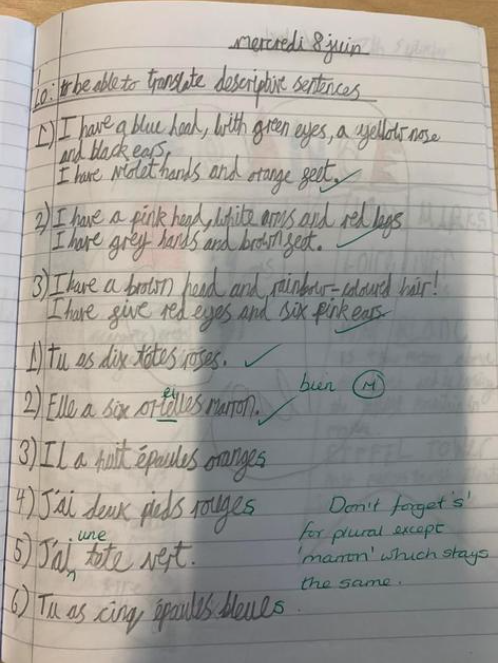 mercredi 8 juin
LO: to be able to translate descriptive sentences
1) I have a blue head, with green eyes, a yellow nose
and black ears.
I have violet hands and orange feet.
2) I have a pink head, white arms and red legs
I have grey hands and brown feet.
3) I have a brown head and rainbow-coloured hair!
I have five red eyes and six pink ears.
1) Tu as dix têtes roses.
bien M
2) Elle a six marron.
3) Il a huit épaules oranges
4) J'ai deux pieds rouges
Don't forget 's'
for plural except
'marron' which stays
the same.
5) J'ai une tete vert.
6) Tu as cinq épaules bleues.